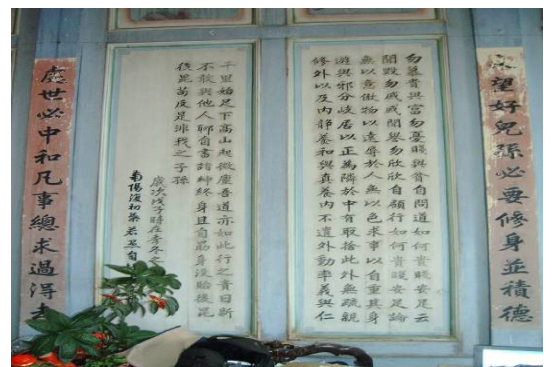 永望好兒孫必要修身並積德
勿慕貴與富勿憂賤與貧自問道如何貴賤安足云
聞毀勿戚戚聞譽勿欣欣自顧行如何貴賤安足論
無以意傲物以遠辱於人無以色求事以自重其身
遊與邪分歧居以正為隣於中有取捨此外無疏親
修外以及內靜養和與真養內不遺外動率義與仁
千里始足下高山起微塵吾道亦如此行之貴日新
不敢與他人聊自書諸紳終身且自勗身沒貽後昆
後昆苟反是非我之子孫
歲次戊子時在季冬之
南陽
處世必中和凡事總求過得去